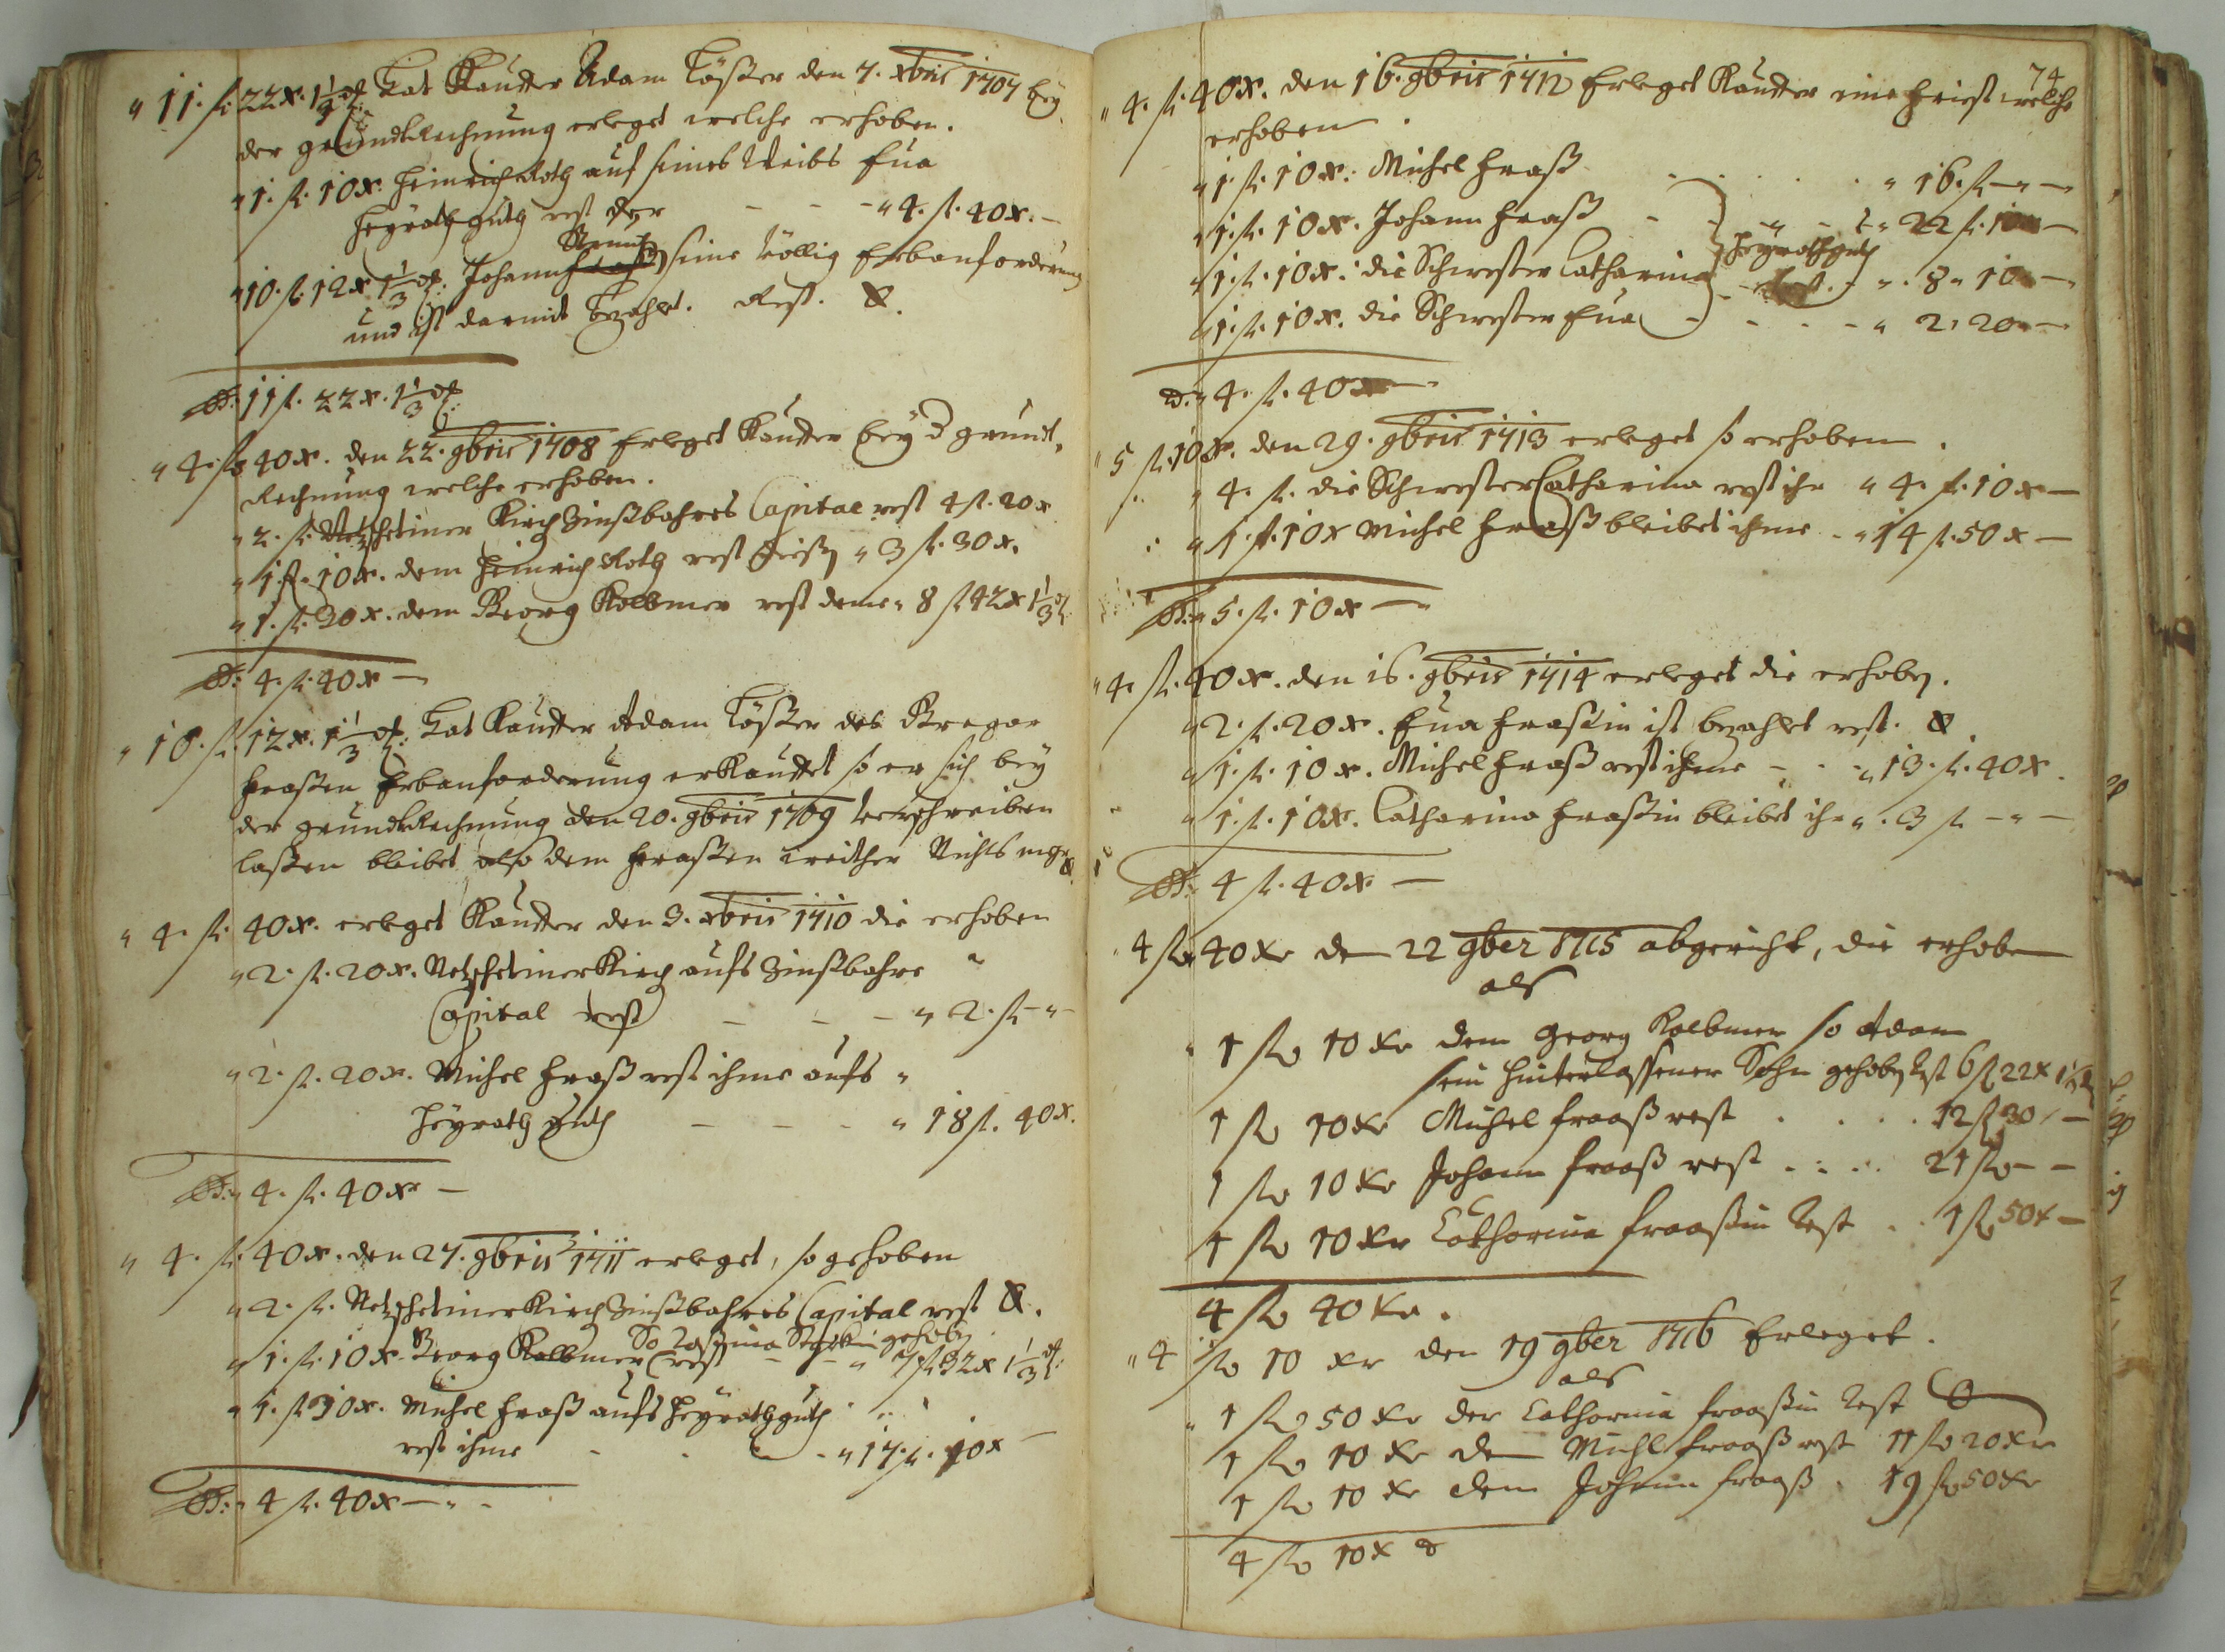 " 11. fl. 22 x. 1 1/3 ₰. Hat Kauffer Adam Lößer den 7. xbris 1707 bey
der grundtRechnung erleget welche erhoben.
" 1. fl. 10 x. Heinrich Roth auf seines Weibs Eua
Heyrath guth rest der — — — " 4. fl. 40 x. —
" 10. fl. 12 x 1 1/3 ₰. Johann seine völlig Erbanforderung
und ist darmit bezahlt. Rest. 0.
S: 11 fl. 22 x. 1 1/3 ₰.
" 4. fl. 40 x. den 22. gbris 1708 Erleget Kauffer bey d grundt„
Rechnung welche erhoben.
" 2. fl. Netschetiner Kirch Zinßbahres Capital rest 4 fl. 20 x
" 1. fl. 10 x. dem Heinrich Roth rest " 3 fl. 30 x.
" 1. fl. 30 x. dem Georg Kolbmer rest deme " 8 fl 42 x 1 1/3 ₰
S: 4. fl. 40 x —
" 10. fl. 12 x. 1 1/3 ₰. Hat Kauffer Adam Lößer des Gregor
Fraßen Erbanforderung erKauffet so er sich bey
der grundtRechnung den 20. gbris 1709 verschreiben
laßen bleibet also dem Fraßen weither Nichts mehr 0.
" 4. fl. 40 x. erleget Kauffer den 3. xbris 1710 die erhoben
" 2. fl. 20 x. Netschetiner Kirch aufs Zinßbahre "
Capital rest — — — " 2. fl. — " —
" 2. fl. 20 x. Michel Fraß rest ihme aufs "
Heyrath guth — — — " 18 fl. 40 x.
S: " 4. fl. 40 x —
" 4. fl. 40 x. den 27. gbris 1711 erleget, so gehoben
" 2. fl. Netschetiner Kirch Zinßbahres Capital rest 0.
So gehoben
" 1. fl. 10 x. Georg Kolbmer rest — — " 7 fl 32 x 1 1/3 ₰.
" 1. fl. 10 x. Michel Fraß aufs Heyrathguth
rest ihme — — — " 17. fl. 10 x —
S: " 4 fl. 40 x — " —
74
" 4. fl. 40 x. den 16. gbris 1712 Erleget Kauffer eine Friest welche
erhoben.
" 1. fl. 10 x. Michel Fraß . . . . " 16. fl — " —
" 1. fl. 10 x. Johann Fraß — — " 22 fl. 10 —
Heyrathguth
" 1. fl. 10 x. die Schwester Catharina — rest. — " 8 " 10 —
" 1. fl. 10 x. die Schwester Eua — — — " 2 " 20 " —
" 4. fl. 40 x —
" 5 fl. 10 x. den 29. gbris 1713 erleget so erhoben.
" 4. fl. die Schwester Catharina rest ihr " 4. fl. 10 x —
" 1. fl. 10 x Michel Fraß bleibet ihme — " 14 fl. 50 x —
S: " 5. fl. 10 x —
" 4. fl. 40 x. den 16. gbris 1714 erleget die erhoben.
" 2. fl. 20 x. Eua Fraßin ist bezahlt rest. 0.
" 1. fl. 10 x. Michel Fraß rest ihme — — " 13. fl. 40 x.
" 1. fl. 10 x. Catharina Fraßin bleibet ihr " 3 fl — " —
S: 4 fl. 40 x —
4 fl 40 xr den 22 gber 1715 abgericht, die erhoben
als
1 fl 10 xr dem Georg Kolbmer so Adam
sein hinterlassener Sohn gehoben Rest 6 fl 22 x 1 1/3 ₰
1 fl 10 xr Michel Fraaß rest . . . . 12 fl 30 —
1 fl 10 xr Johann Fraaß rest . . . . 21 fl — —
1 fl 10 xr Catharina Fraaßin Rest . . 1 fl 50 x —
4 fl 40 xr.
" 4 fl 10 xr den 19 gber 1716 Erleget.
als
" 1 fl 50 xr der Catharina Fraaßin Rest 0
1 fl 10 xr dem Michl Fraaß rest 11 fl 20 xr
1 fl 10 xr dem Johann Fraaß . 19 fl 50 xr
4 fl 10 x